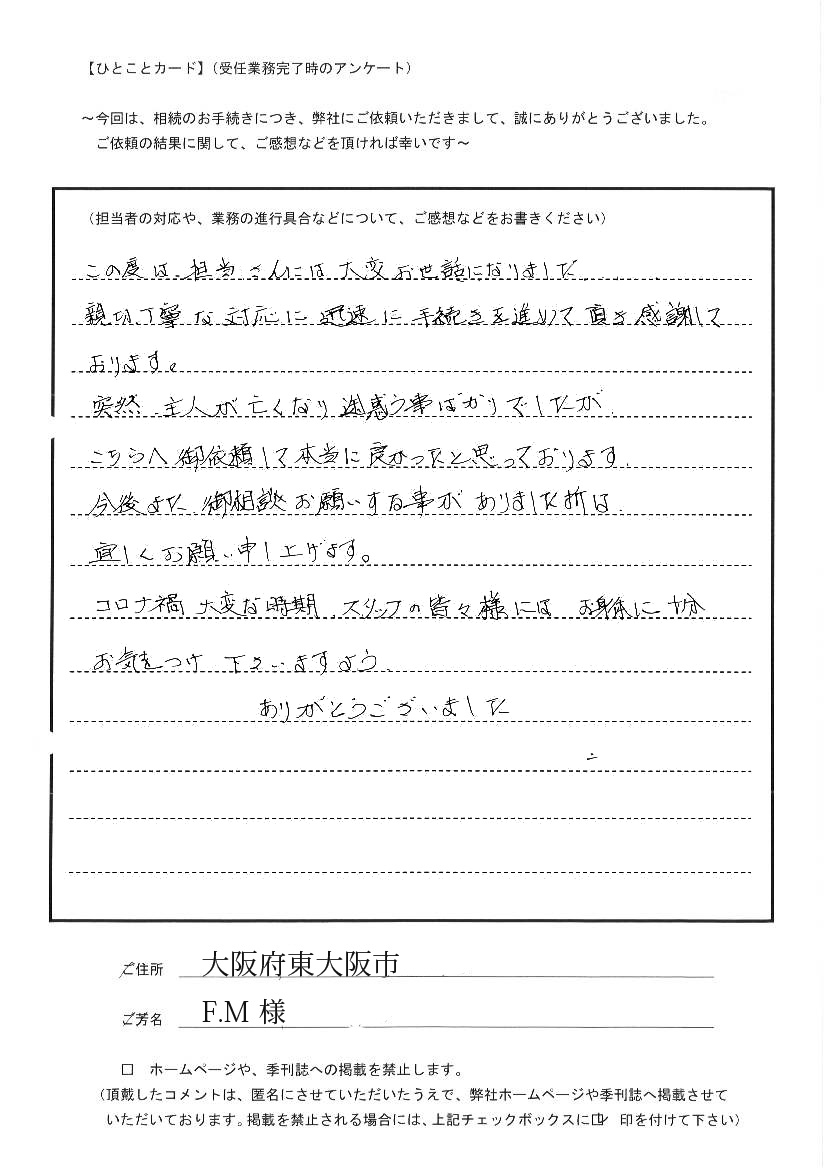 【ひとことカード】(受任業務完了時のアンケート)
～今回は、相続のお手続きにつき、弊社にご依頼いただきまして、誠にありがとうございました。
ご依頼の結果に関して、ご感想などを頂ければ幸いです～
(担当者の対応や、業務の進行具合などについて、ご感想などをお書きください)
この度は、担当さんには大変お世話になりました。
親切丁寧な対応に迅速に手続きを進めて頂き感謝して
おります。
突然、主人が亡くなり迷惑う事ばかりでしたが、
こちらへ御依頼して本当に良かったと思っております。
今後また御相談お願いする事がありました折は、
宜しくお願い申し上げます。
コロナ禍 大変な時期、スタッフの皆々様には お身体に十分
お気をつけ 下さいますよう、
ありがとうございました
ご住所 大阪府東大阪市
ご芳名 F.M 様
□ ホームページや、季刊誌への掲載を禁止します。
(頂戴したコメントは、匿名にさせていただいたうえで、弊社ホームページや季刊誌へ掲載させて
いただいております。掲載を禁止される場合には、上記チェックボックスに☑ 印を付けて下さい)